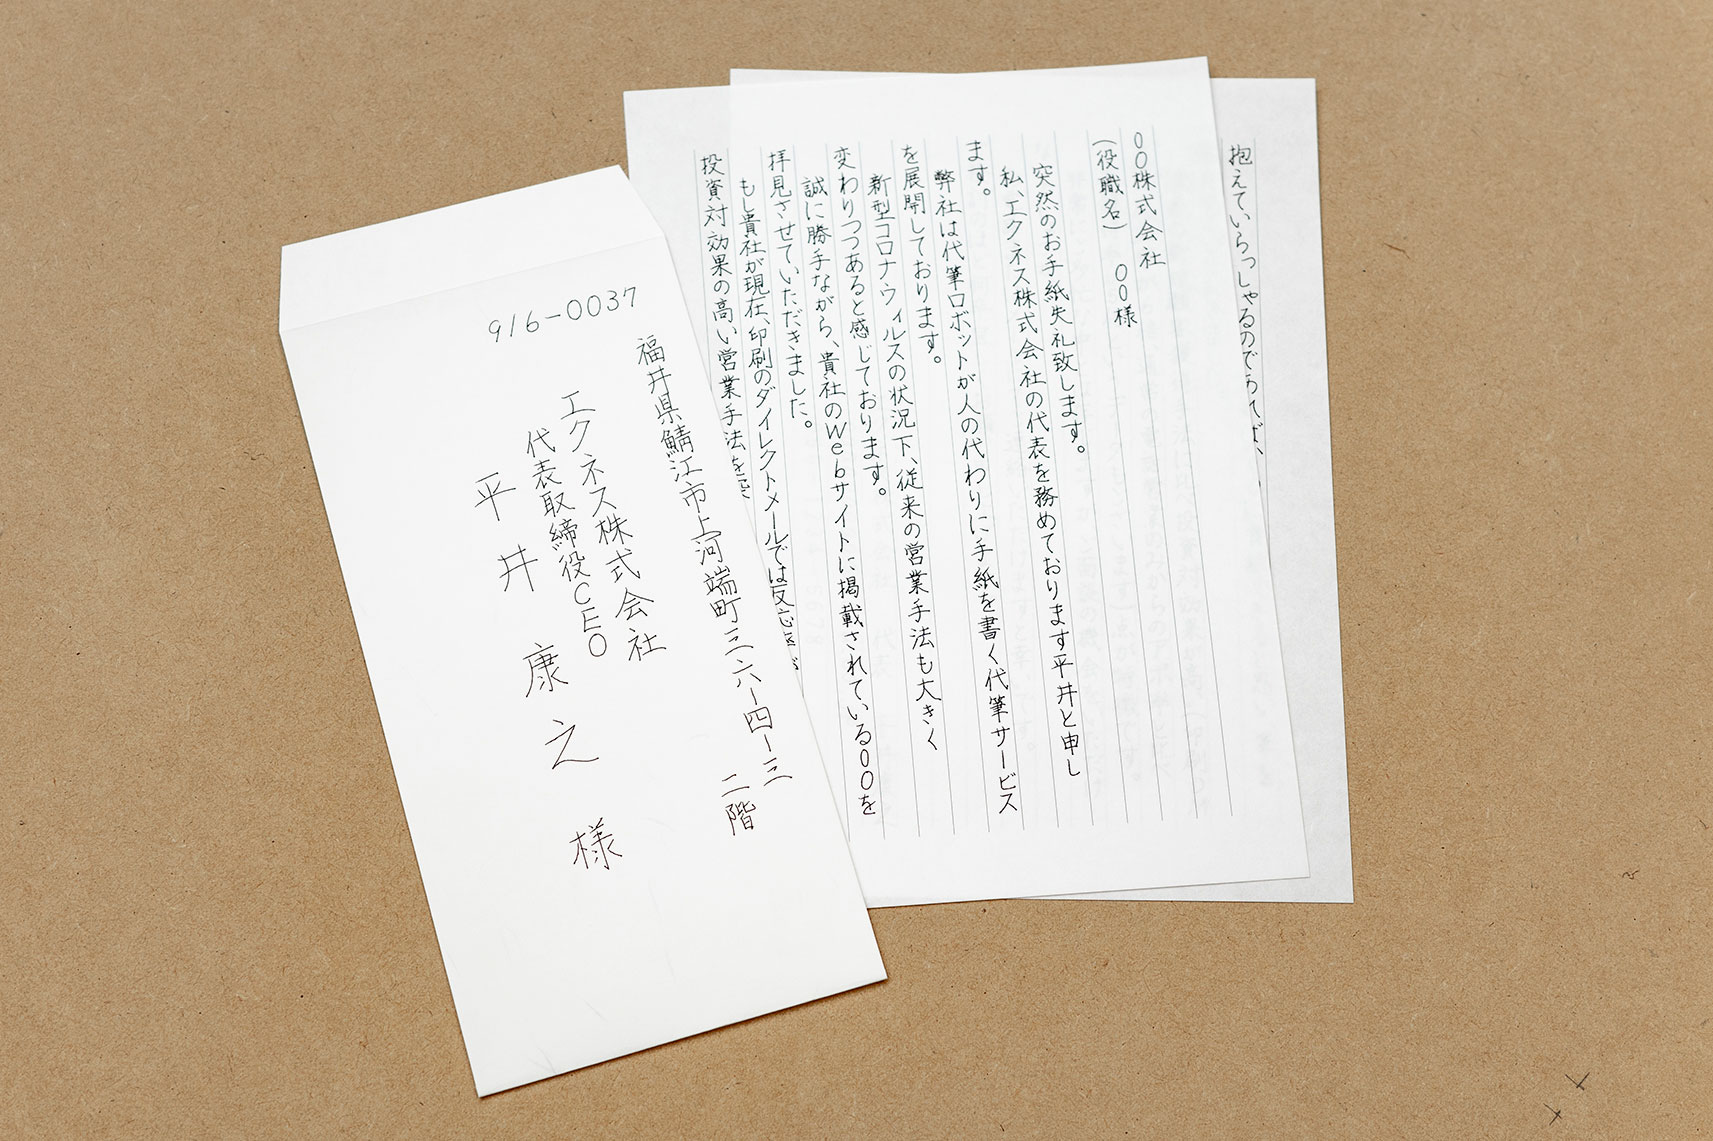 916-0037
福井県鯖江市上河端町三六ー四ー三
二階
エクネス株式会社
代表取締役CEO
平井 康之 様
〇〇株式会社
(役職名) 〇〇様
突然のお手紙失礼致します。
私、エクネス株式会社の代表を務めております平井と申し
ます。
弊社は代筆ロボットが人の代わりに手紙を書く代筆サービス
を展開しております。
新型コロナウィルスの状況下、従来の営業手法も大きく
変わりつつあると感じております。
誠に勝手ながら、貴社のWebサイトに掲載されている〇〇を
拝見させていただきました。
もし貴社が現在、印刷のダイレクトメールでは反応率が
投資対効果の高い営業手法を
抱えていらっしゃるのであれば、